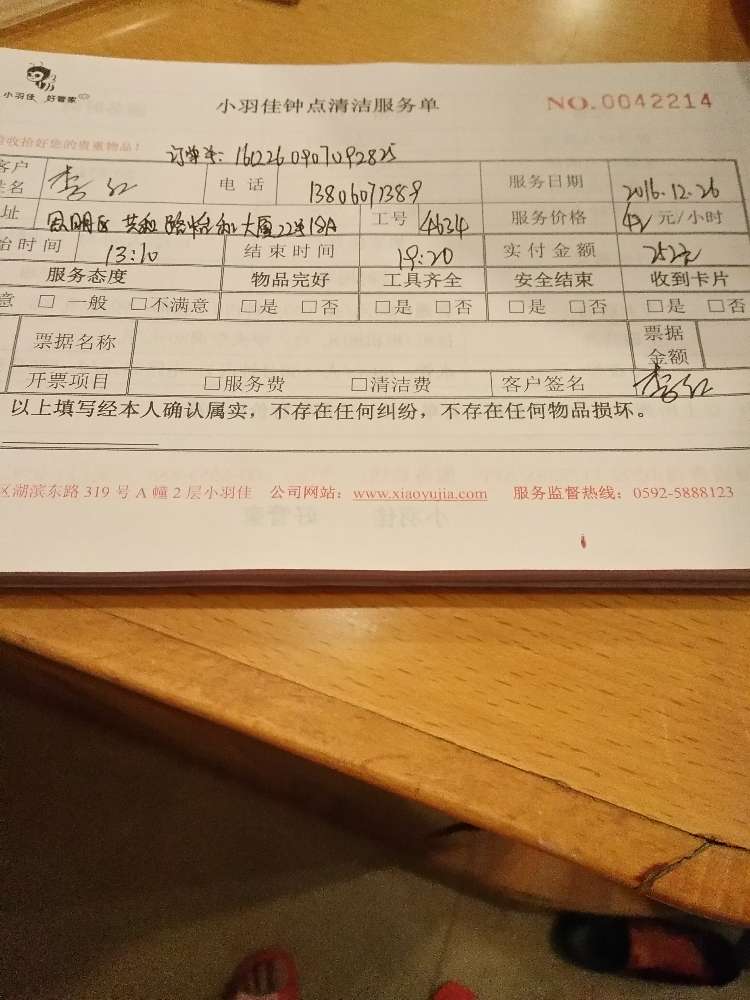 小羽佳 好管家
小羽佳钟点清洁服务单 NO.0042214
收拾好您的贵重物品！
订单号：1612260907092825
客户姓名 李红 电话 13806071389 服务日期 2016.12.26
址 思明区 共和路怡和大厦22#18A 工号 4634 服务价格 42 元/小时
始时间 13:10 结束时间 19:20 实付金额 252元
服务态度 物品完好 工具齐全 安全结束 收到卡片
意 □一般 □不满意 □是 □否 □是 □否 □是 □否 □是 □否
票据名称 票据金额
开票项目 □服务费 □清洁费 客户签名 李红
以上填写经本人确认属实，不存在任何纠纷，不存在任何物品损坏。
区湖滨东路 319 号 A 幢 2 层小羽佳 公司网站：www.xiaoyujia.com 服务监督热线：0592-5888123